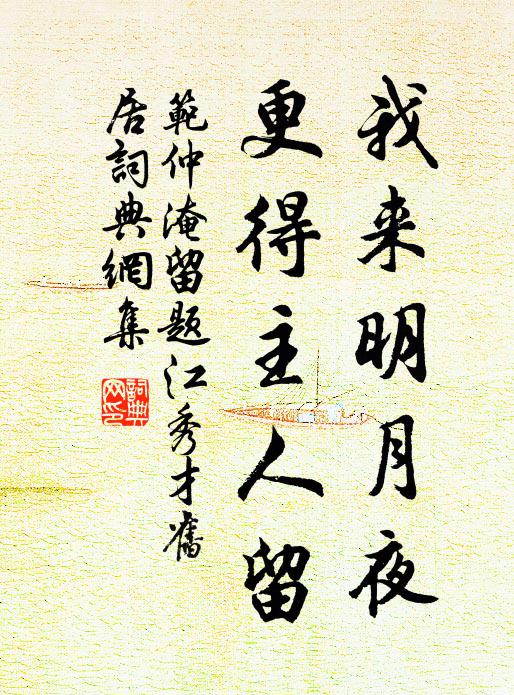 我来明月夜
更得主人留
範仲淹留題江秀才舊
居詞典網集
詞典
网印